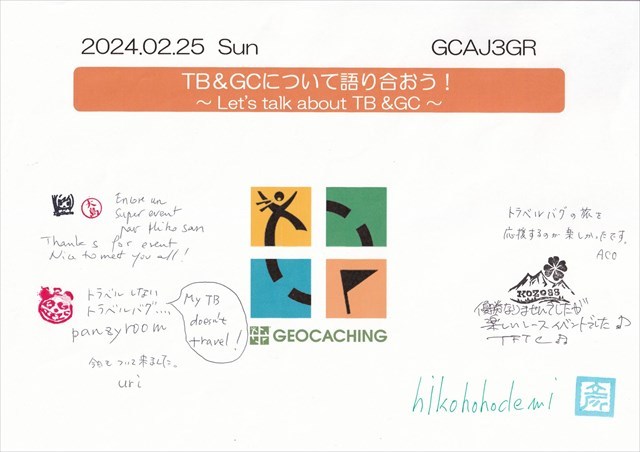 2024.02.25 Sun
GCAJ3GR
TB&GCについて語り合おう！
～ Let's talk about TB &GC ～
Encore un
super event
par Hiko san
Thanks for event
Nice to meet you all!
トラベルしない
トラベルバグ....
panzyroom
My TB
doesn't
travel!
ついて来ました。
uri
GEOCACHING
トラベルバグの旅を
応援するのが楽しかったです。
ACO
KOZOSS
優勝なりませんでしたが
楽しいレースイベントでした♪
TFTC♪
hikohohodemi